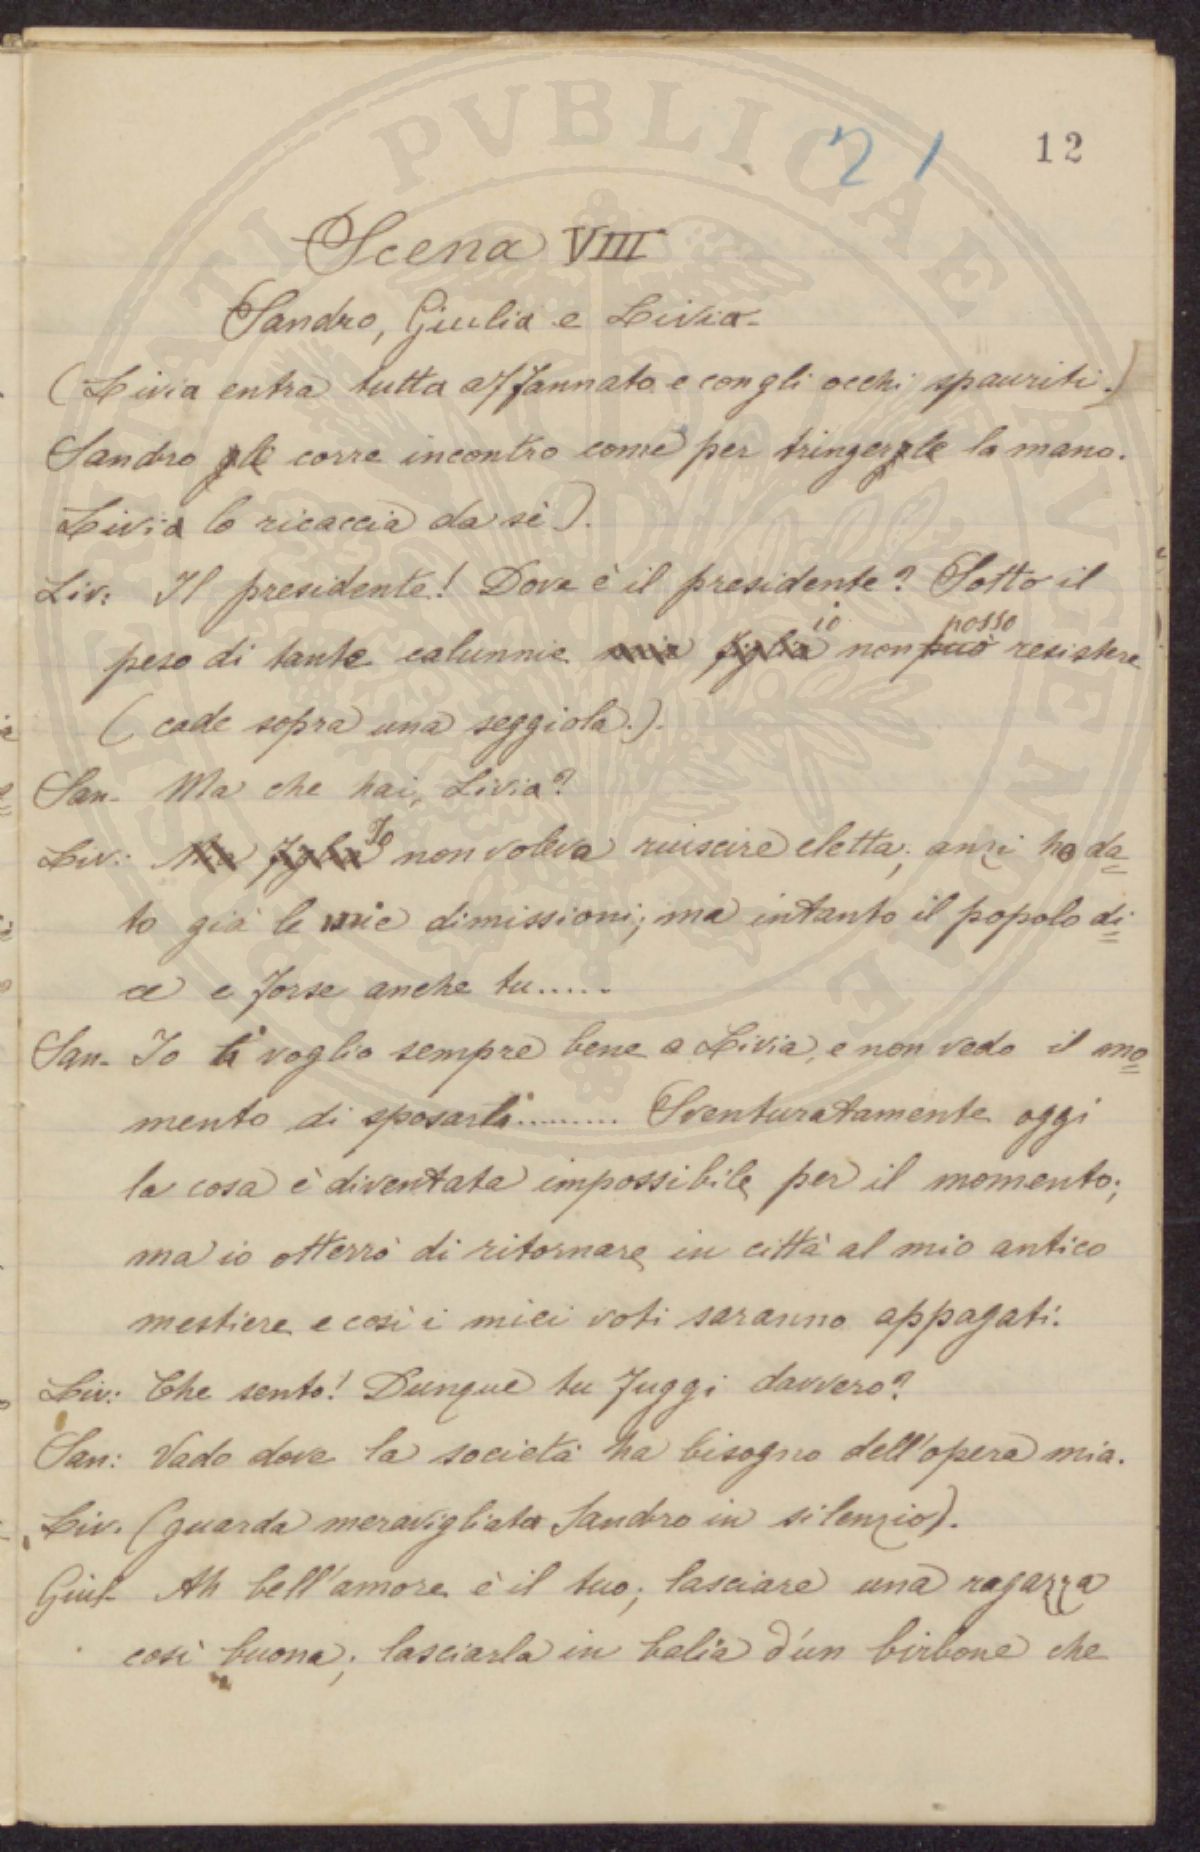 21 12
Scena VIII
Sandro, Giulia e Livia-
(Livia entra tutta affannata e con gli occhi spauriti.)
Sandro le corre incontro come per tringerle la mano.
Livia lo ricaccia da sè).
Liv: Il presidente! Dove è il presidente? Sotto il
io posso
peso di tante calunnie mia figlia non può resistere
(cade sopra una seggiola.).
San- Ma che hai, Livia?
Io
Liv: Mia figlia non voleva riuscire eletta; anzi ho da=
to già le mie dimissioni; ma intanto il popolo di=
ce e forse anche tu.....
San- Io ti voglio sempre bene o Livia, e non vedo il mo=
mento di sposarti......... Sventuratamente oggi
la cosa è diventata impossibile per il momento;
ma io otterrò di ritornare in città al mio antico
mestiere e così i miei voti saranno appagati.
Liv: Che sento! Dunque tu fuggi davvero?
San: Vado dove la società ha bisogno dell'opera mia.
Liv. (guarda meravigliata Sandro in silenzio).
Giul- Ah bell'amore è il tuo; lasciare una ragazza
così buona; lasciarla in balia d'un birbone che